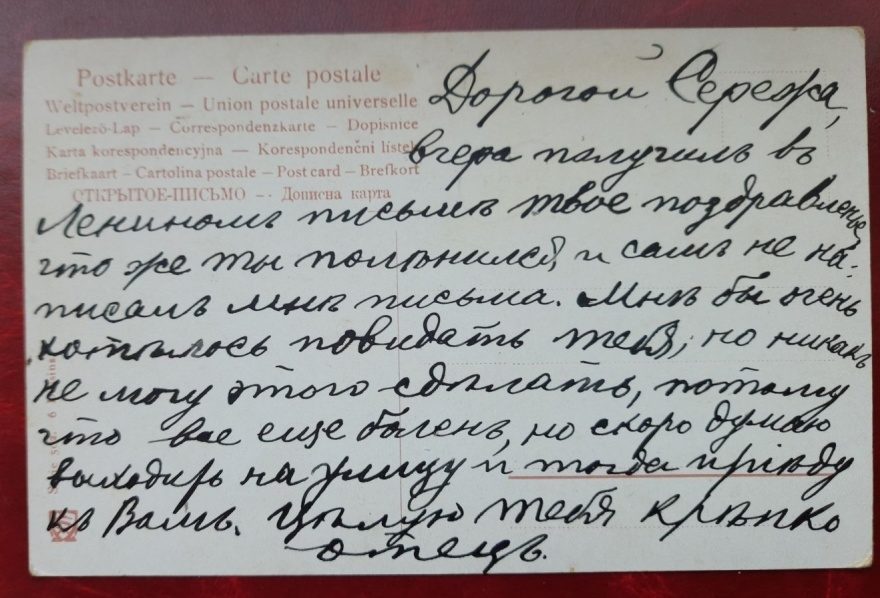 Postkarte — Carte postale
Weltpostverein — Union postale universelle
Levelező-Lap — Correspondenzkarte — Dopisnice
Karta korespondencyjna — Korespondenční lístek
Briefkaart — Cartolina postale — Post card — Brefkort
ОТКРЫТОЕ-ПИСЬМО — Дописна карта
Дорогой Сережа,
вчера получилъ въ
Лениномъ письмѣ твое поздравленье,
что же ты полѣнился, и самъ не на-
писалъ мнѣ письма. Мнѣ бы очень
хотѣлось повидать тебя, но никакъ
не могу этого сдѣлать, потому
что все еще боленъ, но скоро думаю
выходить на улицу и тогда пріѣду
къ Вамъ. Цѣлую тебя крѣпко
отецъ.